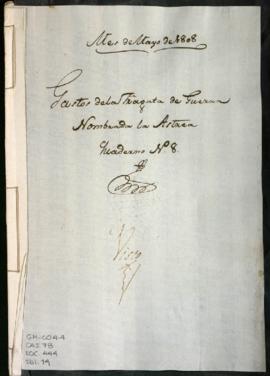 Mes de Mayo de 1808
Gastos de la Fragata de Guerra
Nombrada la Astrea
Quaderno Nº 8.
GM-CO4-4
CAJ 78
DOC. 444
fol. 19